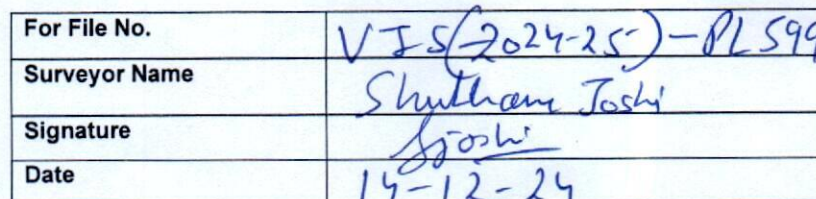 For File No. VIS(2024-25)-PL599
Surveyor Name Joshi
Signature Sjoshi
Date 14-12-24